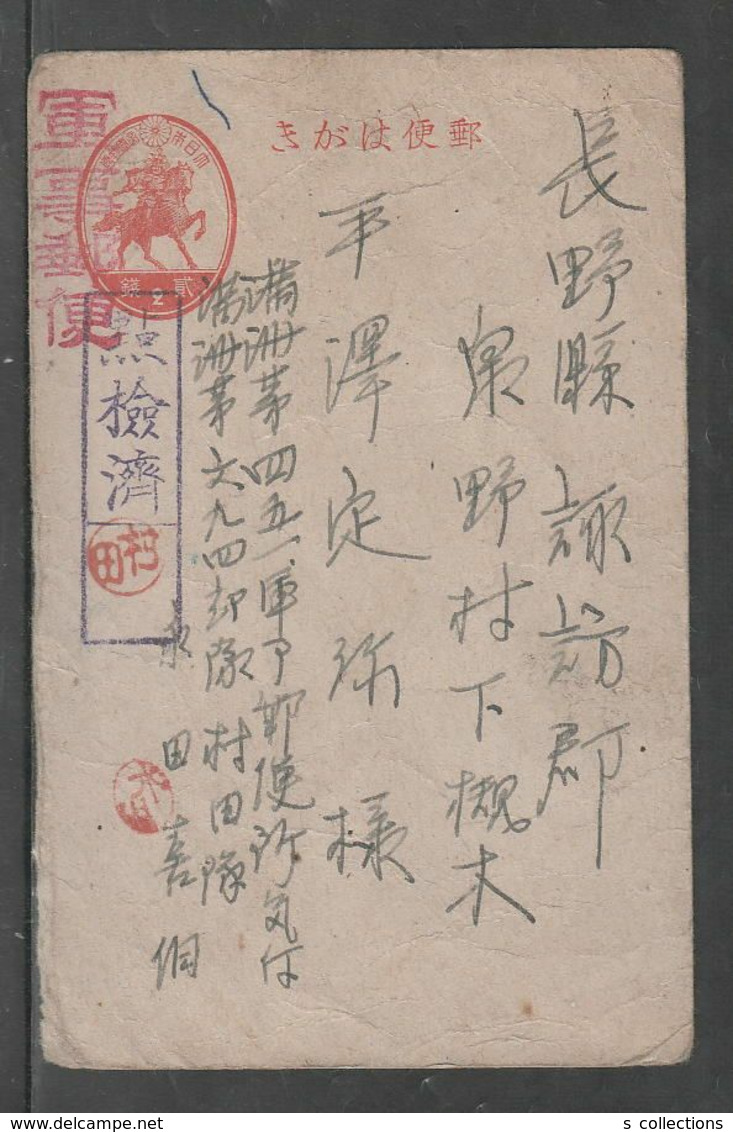 郵便はがき
大日本帝國郵便
貳2錢
軍事郵便
點檢濟
村田
長野縣諏訪郡
泉野村下槻木
平澤定弥様
满洲第四五一軍事郵便所気付
满洲第六九四部隊村田隊
永田喜
s collections
delcampe.net